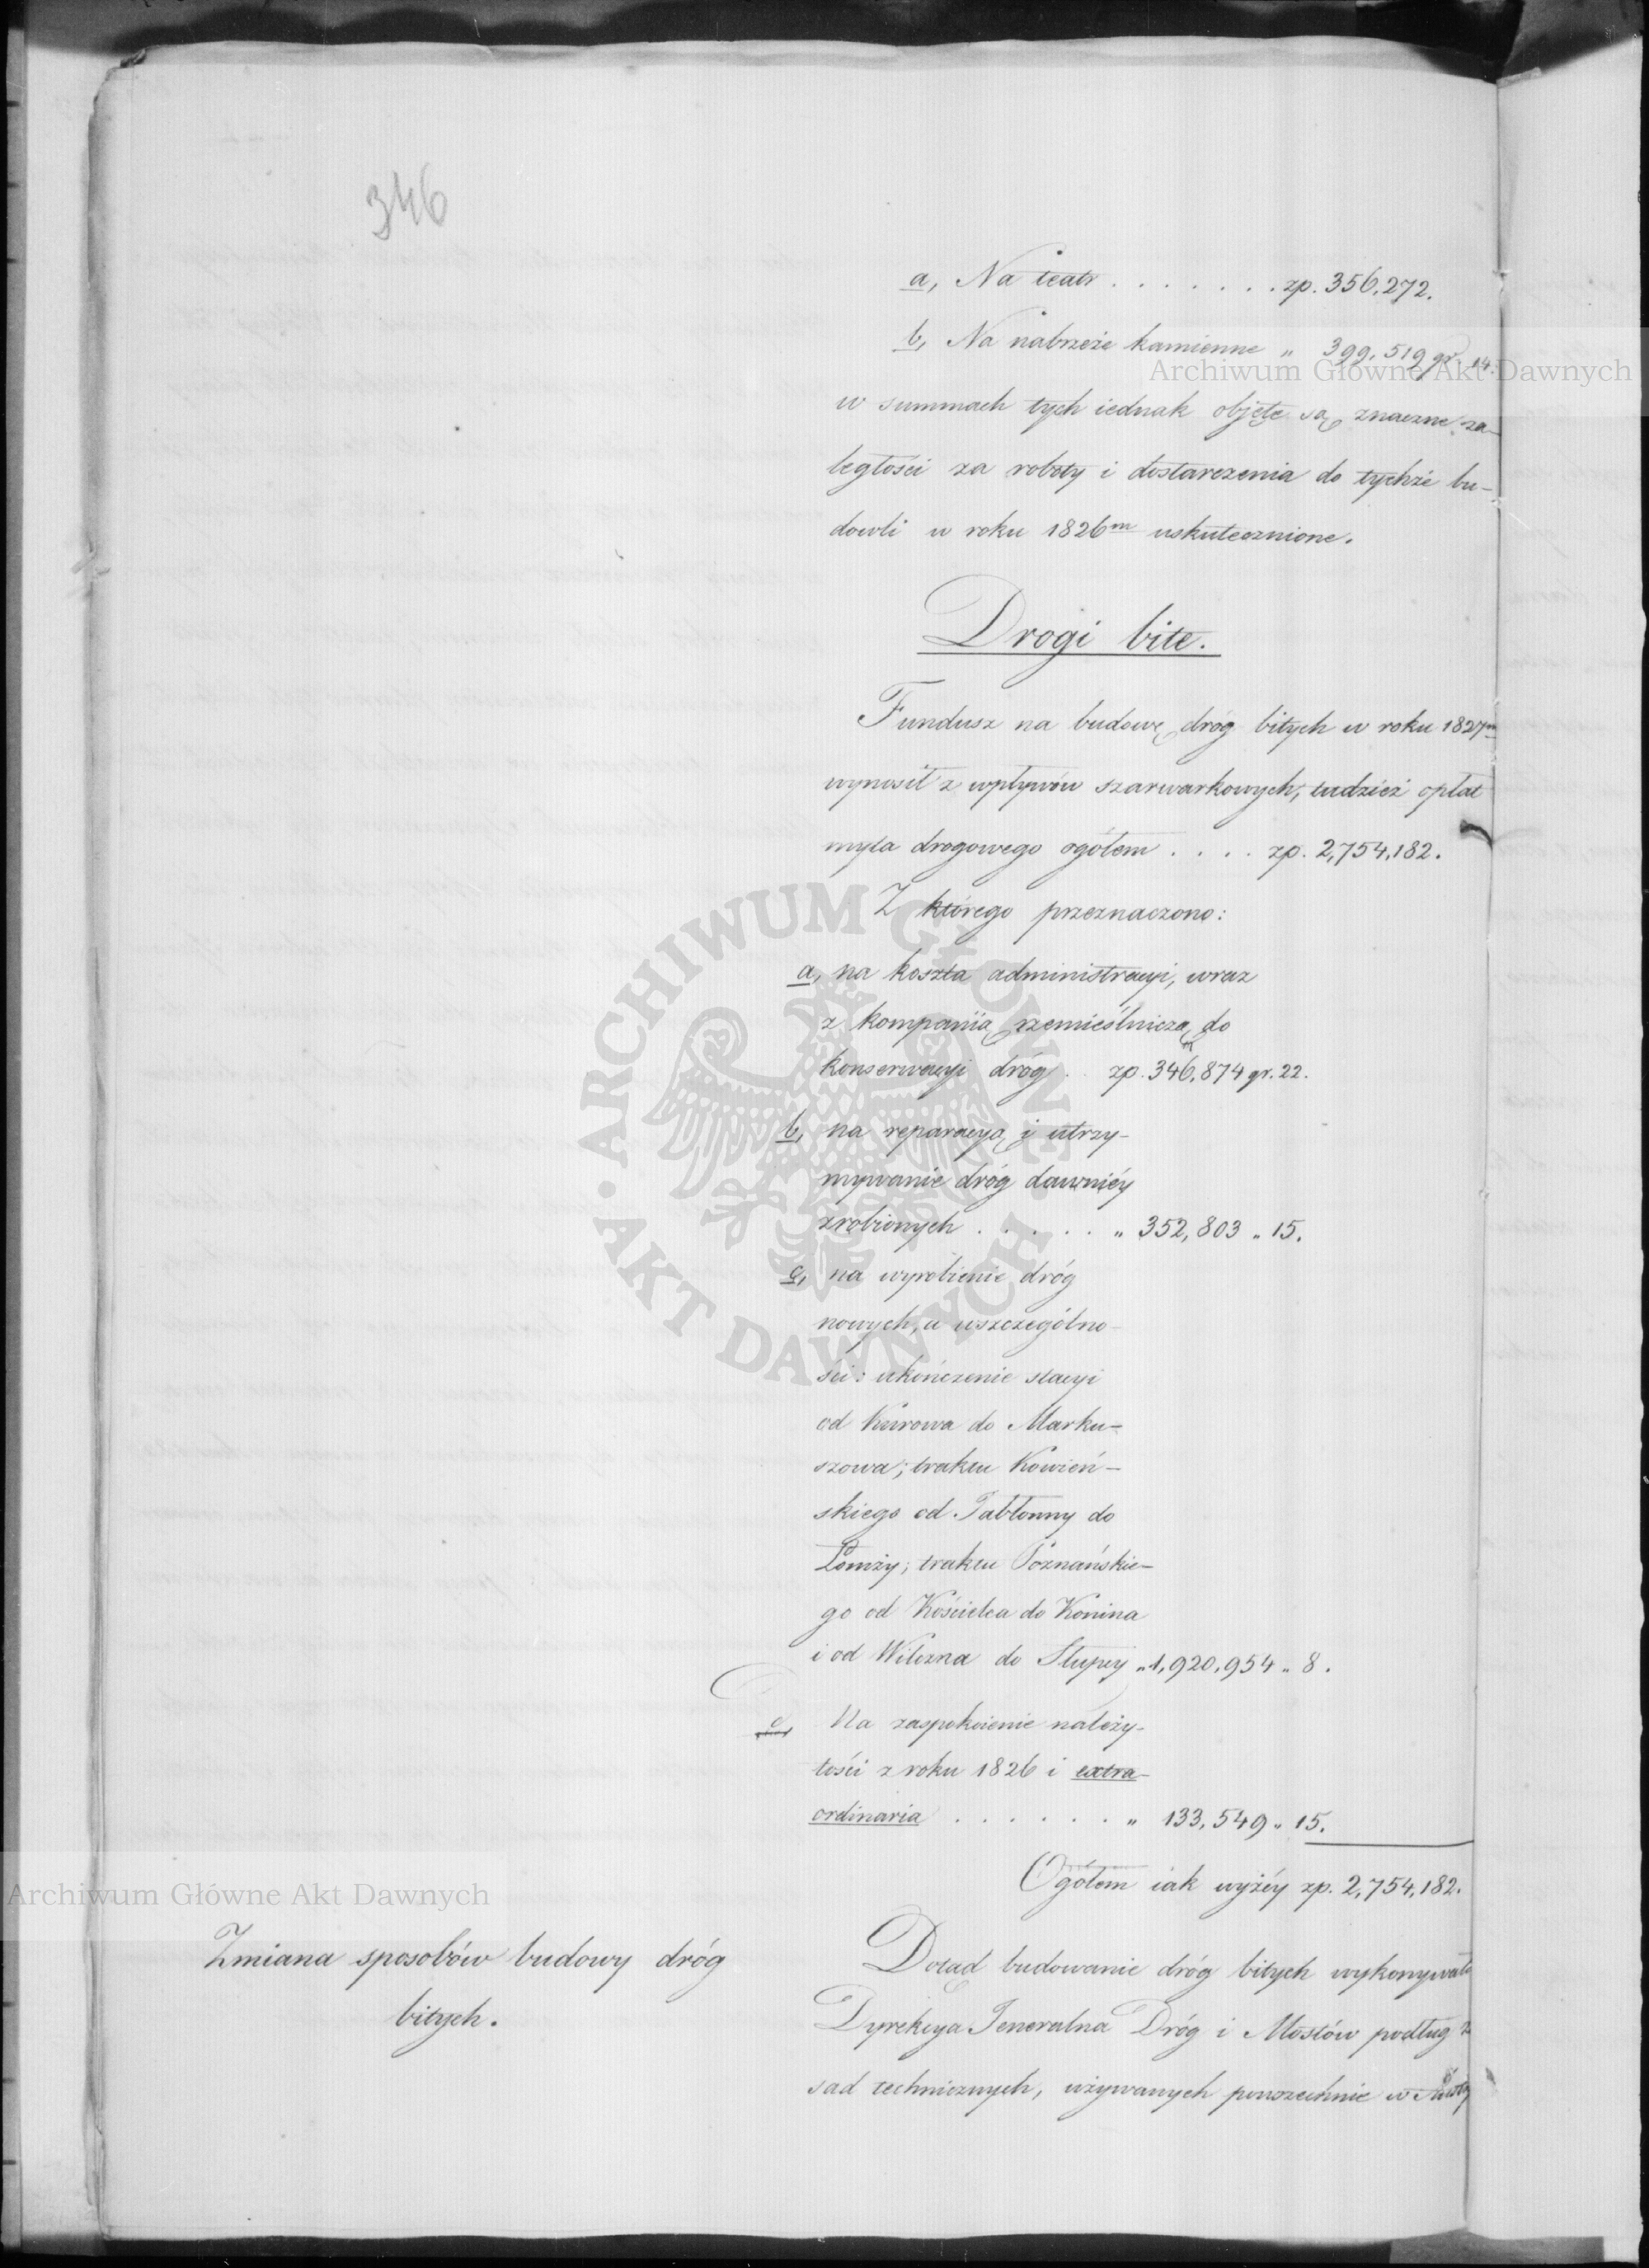 346
a, Na teatr . . . . . . . zp. 356,272.
b, Na nabrzeże kamienne „ 399,519 gr. 14.
w summach tych iednak objęte są znaczne za-
ległości za roboty i dostarczenia do tychże bu-
dowli w roku 1826m uskutecznione.
Drogi bite.
Fundusz na budowę dróg bitych w roku 1827m
wynosił z wpływów szarwarkowych, tudzież opłat
myta drogowego ogółem . . . . zp. 2,754,182.
Z którego przeznaczono:
a, na koszta administracyi, wraz
z kompanią rzemieślniczą do
konserwacyi dróg . . zp. 346,874 gr. 22.
b, na reparacyą i utrzy-
mywanie dróg dawniéy
zrobionych . . . . . „ 352,803 „ 15.
c, na wyrobienie dróg
nowych, w uszczególno-
ści: ukończenie stacyi
od Kurowa do Marku-
szowa; traktu Kowień-
skiego od Jabłonny do
Łomży; traktu Poznańskie-
go od Kościelca do Konina
i od Wilczna do Słupcy „ 1,920,954 „ 8.
Na zaspokoienie należy-
tości z roku 1826 i extra-
ordinaria . . . . . . „ 133,549 „ 15.
Ogółem iak wyżéy zp. 2,754,182.
Zmiana sposobów budowy dróg
bitych.
Dotąd budowanie dróg bitych wykonywała
Dyrekcya Jeneralna Dróg i Mostów podług
sad technicznych, używanych powszechnie w
Archiwum Główne Akt Dawnych
Archiwum Główne Akt Dawnych
ARCHIWUM GŁÓWNE • AKT DAWNYCH •